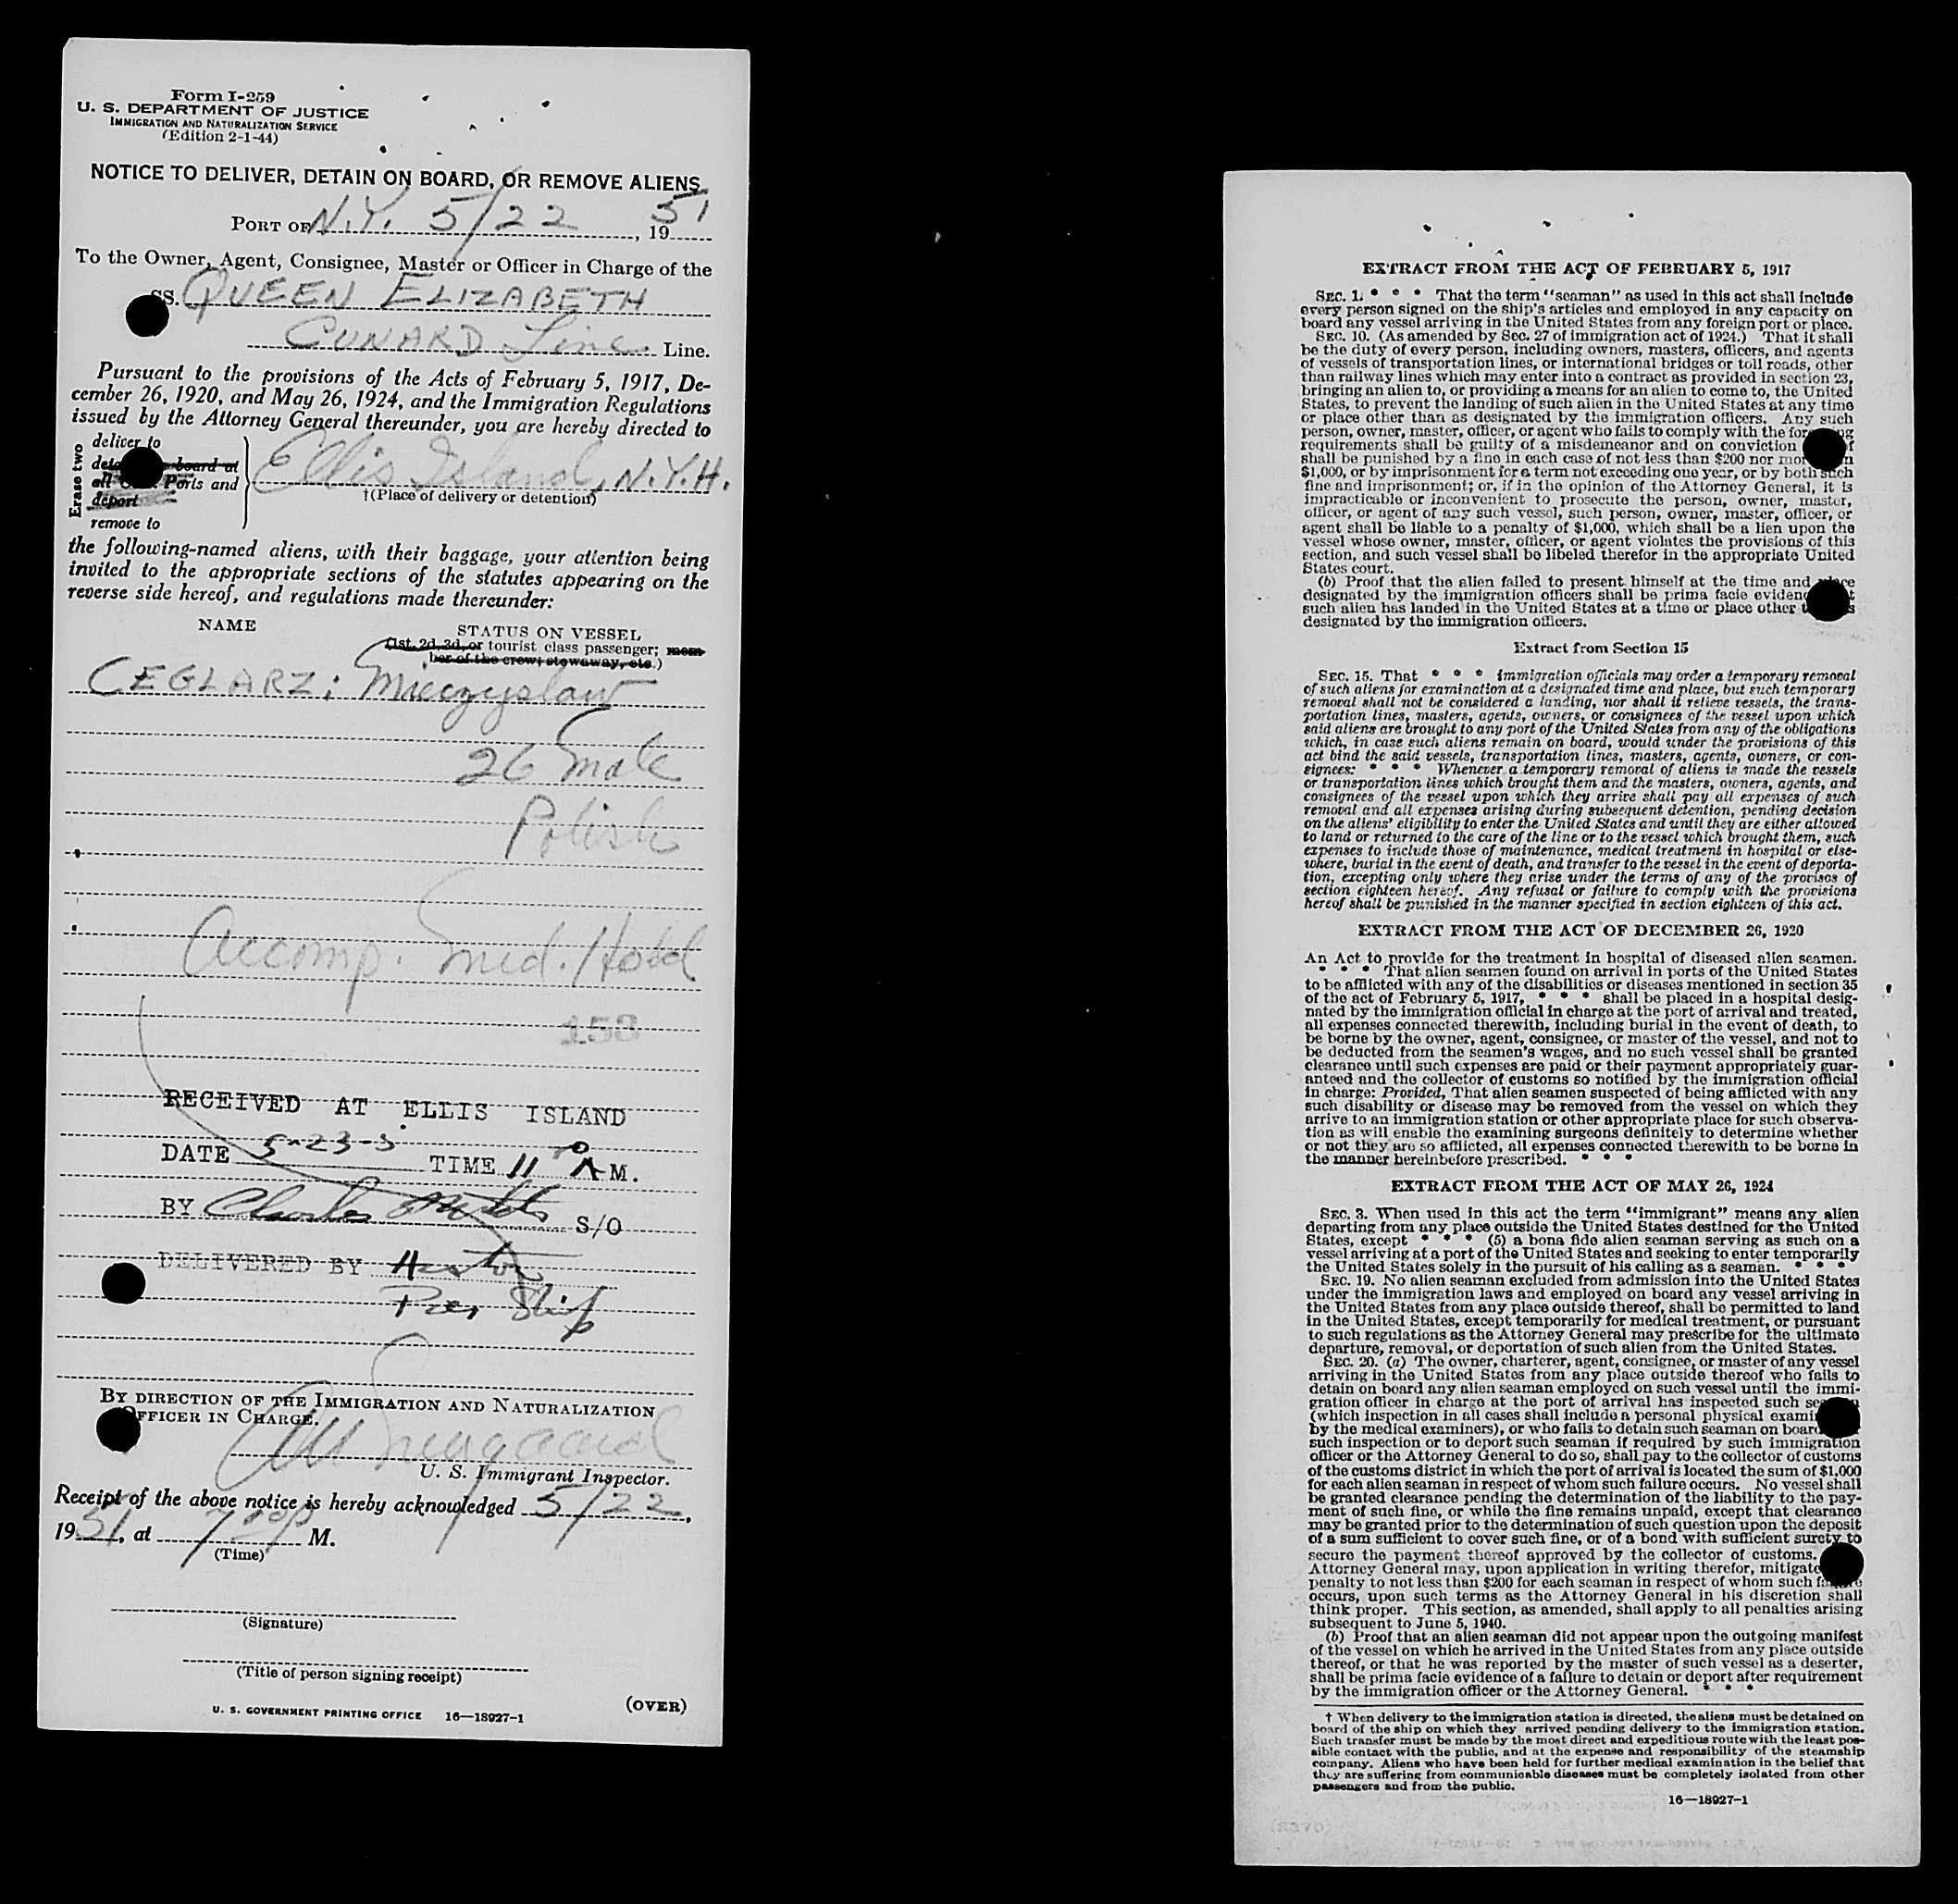 Form I-259
U. S. DEPARTMENT OF JUSTICE
IMMIGRATION AND NATURALIZATION SERVICE
(Edition 2-1-44)
NOTICE TO DELIVER, DETAIN ON BOARD, OR REMOVE ALIENS
PORT OF N.Y. 5/22, 1951
To the Owner, Agent, Consignee, Master or Officer in Charge of the
SS. QUEEN ELIZABETH
CUNARD Line Line.
Pursuant to the provisions of the Acts of February 5, 1917, De-
cember 26, 1920, and May 26, 1924, and the Immigration Regulations
issued by the Attorney General thereunder, you are hereby directed to
Erase two
deliver to
board at
all Ports and
deport
remove to
Ellis Island, N.Y.H.
†(Place of delivery or detention)
the following-named aliens, with their baggage, your attention being
invited to the appropriate sections of the statutes appearing on the
reverse side hereof, and regulations made thereunder:
NAME STATUS ON VESSEL
(1st, 2d, 3d, or tourist class passenger; mem-
ber of the crew; stowaway, etc.)
CEGLARZ; Mieczyslaw
26 Male
Polish
Accomp. Med. Hold
153
RECEIVED AT ELLIS ISLAND
DATE 5-23-5 TIME 11 AM.
BY Charles S/O
DELIVERED BY
Per Ship
BY DIRECTION OF THE IMMIGRATION AND NATURALIZATION
OFFICER IN CHARGE.
U. S. Immigrant Inspector.
Receipt of the above notice is hereby acknowledged 5/22,
1951, at 7 00 P M.
(Time)
(Signature)
(Title of person signing receipt)
U. S. GOVERNMENT PRINTING OFFICE 16—18927-1 (OVER)
EXTRACT FROM THE ACT OF FEBRUARY 5, 1917
SEC. 1. * * * That the term "seaman" as used in this act shall include
every person signed on the ship's articles and employed in any capacity on
board any vessel arriving in the United States from any foreign port or place.
SEC. 10. (As amended by Sec. 27 of immigration act of 1924.) That it shall
be the duty of every person, including owners, masters, officers, and agents
of vessels of transportation lines, or international bridges or toll roads, other
than railway lines which may enter into a contract as provided in section 23,
bringing an alien to, or providing a means for an alien to come to, the United
States, to prevent the landing of such alien in the United States at any time
or place other than as designated by the immigration officers. Any such
person, owner, master, officer, or agent who fails to comply with the foregoing
requirements shall be guilty of a misdemeanor and on conviction of
shall be punished by a fine in each case of not less than $200 nor more than
$1,000, or by imprisonment for a term not exceeding one year, or by both such
fine and imprisonment; or, if in the opinion of the Attorney General, it is
impracticable or inconvenient to prosecute the person, owner, master,
officer, or agent of any such vessel, such person, owner, master, officer, or
agent shall be liable to a penalty of $1,000, which shall be a lien upon the
vessel whose owner, master, officer, or agent violates the provisions of this
section, and such vessel shall be libeled therefor in the appropriate United
States court.
(b) Proof that the alien failed to present himself at the time and place
designated by the immigration officers shall be prima facie evidence that
such alien has landed in the United States at a time or place other than as
designated by the immigration officers.
Extract from Section 15
SEC. 15. That * * * immigration officials may order a temporary removal
of such aliens for examination at a designated time and place, but such temporary
removal shall not be considered a landing, nor shall it relieve vessels, the trans-
portation lines, masters, agents, owners, or consignees of the vessel upon which
said aliens are brought to any port of the United States from any of the obligations
which, in case such aliens remain on board, would under the provisions of this
act bind the said vessels, transportation lines, masters, agents, owners, or con-
signees: * * * Whenever a temporary removal of aliens is made the vessels
or transportation lines which brought them and the masters, owners, agents, and
consignees of the vessel upon which they arrive shall pay all expenses of such
removal and all expenses arising during subsequent detention, pending decision
on the aliens' eligibility to enter the United States and until they are either allowed
to land or returned to the care of the line or to the vessel which brought them, such
expenses to include those of maintenance, medical treatment in hospital or else-
where, burial in the event of death, and transfer to the vessel in the event of deporta-
tion, excepting only where they arise under the terms of any of the provisos of
section eighteen hereof. Any refusal or failure to comply with the provisions
hereof shall be punished in the manner specified in section eighteen of this act.
EXTRACT FROM THE ACT OF DECEMBER 26, 1920
An Act to provide for the treatment in hospital of diseased alien seamen.
* * * That alien seamen found on arrival in ports of the United States
to be afflicted with any of the disabilities or diseases mentioned in section 35
of the act of February 5, 1917, * * * shall be placed in a hospital desig-
nated by the immigration official in charge at the port of arrival and treated,
all expenses connected therewith, including burial in the event of death, to
be borne by the owner, agent, consignee, or master of the vessel, and not to
be deducted from the seamen's wages, and no such vessel shall be granted
clearance until such expenses are paid or their payment appropriately guar-
anteed and the collector of customs so notified by the immigration official
in charge: Provided, That alien seamen suspected of being afflicted with any
such disability or disease may be removed from the vessel on which they
arrive to an immigration station or other appropriate place for such observa-
tion as will enable the examining surgeons definitely to determine whether
or not they are so afflicted, all expenses connected therewith to be borne in
the manner hereinbefore prescribed. * * *
EXTRACT FROM THE ACT OF MAY 26, 1924
SEC. 3. When used in this act the term "immigrant" means any alien
departing from any place outside the United States destined for the United
States, except * * * (5) a bona fide alien seaman serving as such on a
vessel arriving at a port of the United States and seeking to enter temporarily
the United States solely in the pursuit of his calling as a seaman. * * *
SEC. 19. No alien seaman excluded from admission into the United States
under the immigration laws and employed on board any vessel arriving in
the United States from any place outside thereof, shall be permitted to land
in the United States, except temporarily for medical treatment, or pursuant
to such regulations as the Attorney General may prescribe for the ultimate
departure, removal, or deportation of such alien from the United States.
SEC. 20. (a) The owner, charterer, agent, consignee, or master of any vessel
arriving in the United States from any place outside thereof who fails to
detain on board any alien seaman employed on such vessel until the immi-
gration officer in charge at the port of arrival has inspected such seaman
(which inspection in all cases shall include a personal physical examination
by the medical examiners), or who fails to detain such seaman on board after
such inspection or to deport such seaman if required by such immigration
officer or the Attorney General to do so, shall pay to the collector of customs
of the customs district in which the port of arrival is located the sum of $1,000
for each alien seaman in respect of whom such failure occurs. No vessel shall
be granted clearance pending the determination of the liability to the pay-
ment of such fine, or while the fine remains unpaid, except that clearance
may be granted prior to the determination of such question upon the deposit
of a sum sufficient to cover such fine, or of a bond with sufficient surety to
secure the payment thereof approved by the collector of customs.
Attorney General may, upon application in writing therefor, mitigate
penalty to not less than $200 for each seaman in respect of whom such failure
occurs, upon such terms as the Attorney General in his discretion shall
think proper. This section, as amended, shall apply to all penalties arising
subsequent to June 5, 1940.
(b) Proof that an alien seaman did not appear upon the outgoing manifest
of the vessel on which he arrived in the United States from any place outside
thereof, or that he was reported by the master of such vessel as a deserter,
shall be prima facie evidence of a failure to detain or deport after requirement
by the immigration officer or the Attorney General. * * *
† When delivery to the immigration station is directed, the aliens must be detained on
board of the ship on which they arrived pending delivery to the immigration station.
Such transfer must be made by the most direct and expeditious route with the least pos-
sible contact with the public, and at the expense and responsibility of the steamship
company. Aliens who have been held for further medical examination in the belief that
they are suffering from communicable diseases must be completely isolated from other
passengers and from the public.
16—18927-1